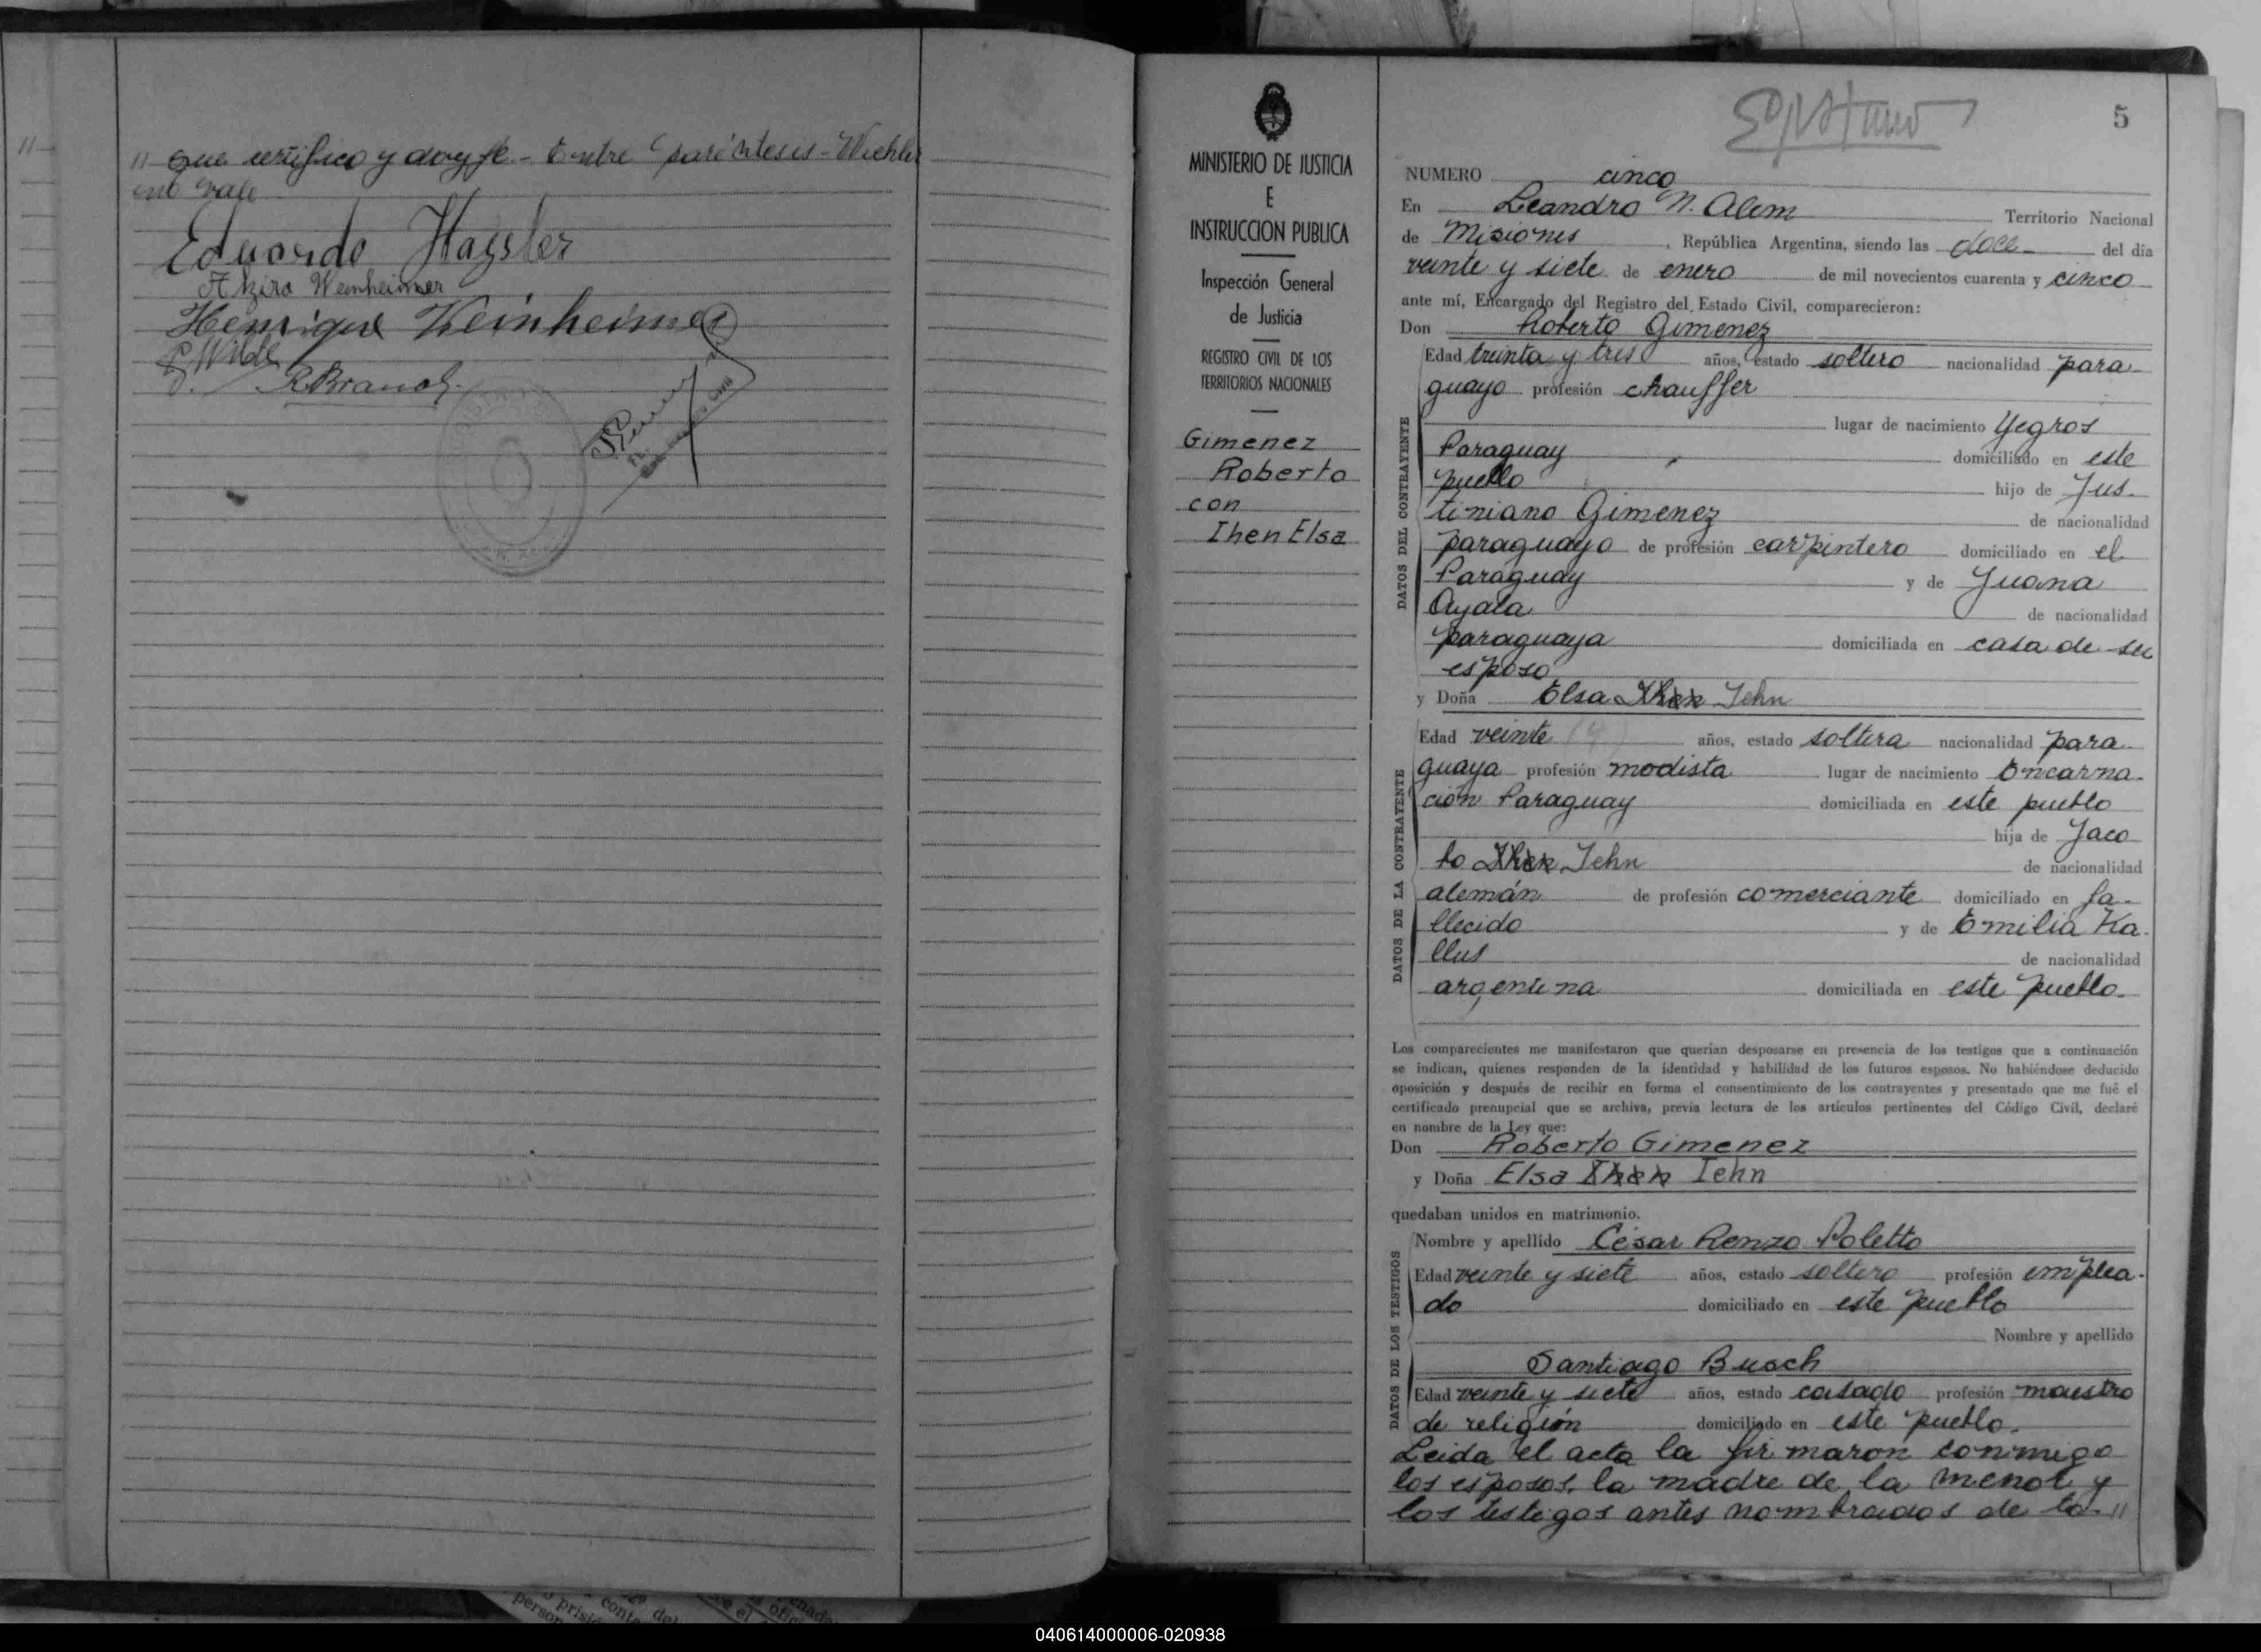 11
5
" que certifico y doy fe - Entre paréntesis - Wiehler
no vale
Eduardo Haysler
Alzira Weinheimer
Henrique Weinheimer
Wilde
R Brandt
MINISTERIO DE JUSTICIA
E
INSTRUCCION PUBLICA
Inspección General
de Justicia
REGISTRO CIVIL DE LOS
TERRITORIOS NACIONALES
Gimenez
Roberto
con
Ihen Elsa
NUMERO cinco
En Leandro N. Alem Territorio Nacional
de Misiones, República Argentina, siendo las doce del día
veinte y siete de enero de mil novecientos cuarenta y cinco
ante mí, Encargado del Registro del Estado Civil, comparecieron:
Don Roberto Gimenez
DATOS DEL CONTRAYENTE
Edad treinta y tres años, estado soltero nacionalidad para-
guayo profesión chauffer
lugar de nacimiento Yegros
Paraguay domiciliado en este
pueblo hijo de Jus-
tiniano Gimenez de nacionalidad
paraguayo de profesión carpintero domiciliado en el
Paraguay y de Juana
Ayala de nacionalidad
paraguaya domiciliada en casa de su
esposo
y Doña Elsa Ihen Iehn
DATOS DE LA CONTRAYENTE
Edad veinte años, estado soltera nacionalidad para-
guaya profesión modista lugar de nacimiento Encarna-
ción Paraguay domiciliada en este pueblo
hija de Jaco
bo Ihen Iehn de nacionalidad
alemán de profesión comerciante domiciliado en fa-
llecido y de Emilia Ka-
llus de nacionalidad
argentina domiciliada en este pueblo.
Los comparecientes me manifestaron que querían desposarse en presencia de los testigos que a continuación
se indican, quienes responden de la identidad y habilidad de los futuros esposos. No habiéndose deducido
oposición y después de recibir en forma el consentimiento de los contrayentes y presentado que me fué el
certificado prenupcial que se archiva, previa lectura de los artículos pertinentes del Código Civil, declaré
en nombre de la Ley que:
Don Roberto Gimenez
y Doña Elsa Ihen Iehn
quedaban unidos en matrimonio.
DATOS DE LOS TESTIGOS
Nombre y apellido César Renzo Poletto
Edad veinte y siete años, estado soltero profesión emplea-
do domiciliado en este pueblo
Nombre y apellido
Santiago Busch
Edad veinte y siete años, estado casado profesión maestro
de religión domiciliado en este pueblo.
Leida el acta la firmaron conmigo
los esposos, la madre de la menor y
los testigos antes nombrados de to- "
040614000006-020938